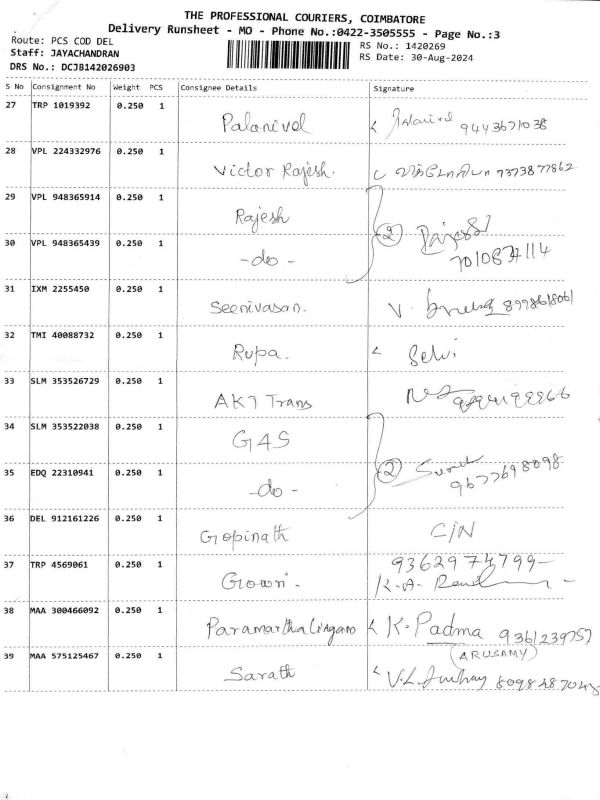 THE PROFESSIONAL COURIERS, COIMBATORE
Delivery Runsheet - MO - Phone No.:0422-3505555 - Page No.:3
Route: PCS COD DEL
RS No.: 1420269
Staff: JAYACHANDRAN
RS Date: 30-Aug-2024
DRS No.: DCJB142026903
S No Consignment No Weight PCS Consignee Details Signature
27 TRP 1019392 0.250 1 Palanivel
28 VPL 224332976 0.250 1 Victor Rajesh. 7373877862
29 VPL 948365914 0.250 1 Rajesh
②
30 VPL 948365439 0.250 1 -do-
31 IXM 2255450 0.250 1 Seenivasan. V.
32 TMI 40088732 0.250 1 Rupa. Selvi
33 SLM 353526729 0.250 1 AKT Trans
34 SLM 353522038 0.250 1 G4S
②
35 EDQ 22310941 0.250 1 -do- 9677698098
36 DEL 912161226 0.250 1 Gopinath C/N
9362974799
37 TRP 4569061 0.250 1 Gowri. K.A.
38 MAA 300466092 0.250 1 Paramarthalingam K. Padma 9361239757
(ARUSAMY)
39 MAA 575125467 0.250 1 Sarath V.L.